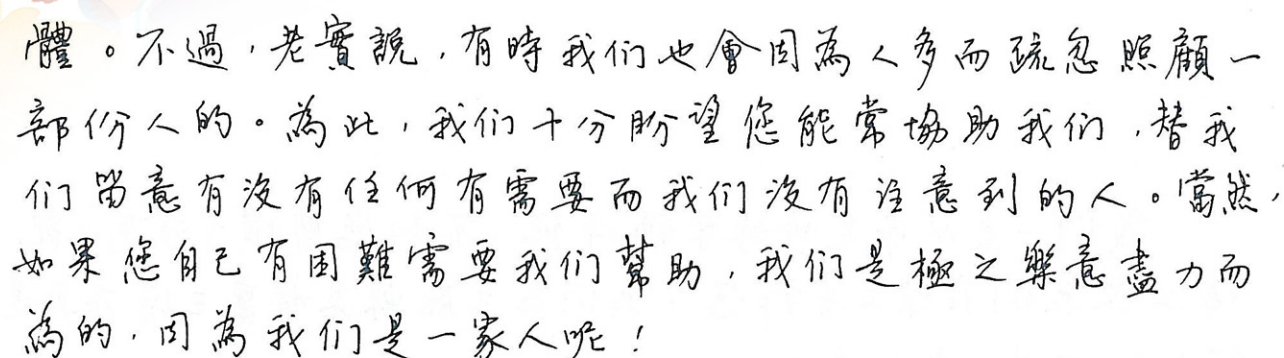 體。不過，老實說，有時我们也會因為人多而疏忽照顧一
部份人的。為此，我们十分盼望您能常協助我们，替我
们留意有沒有任何有需要而我们沒有注意到的人。當然，
如果您自己有困難需要我们幫助，我们是極之樂意盡力而
為的，因為我们是一家人呢！